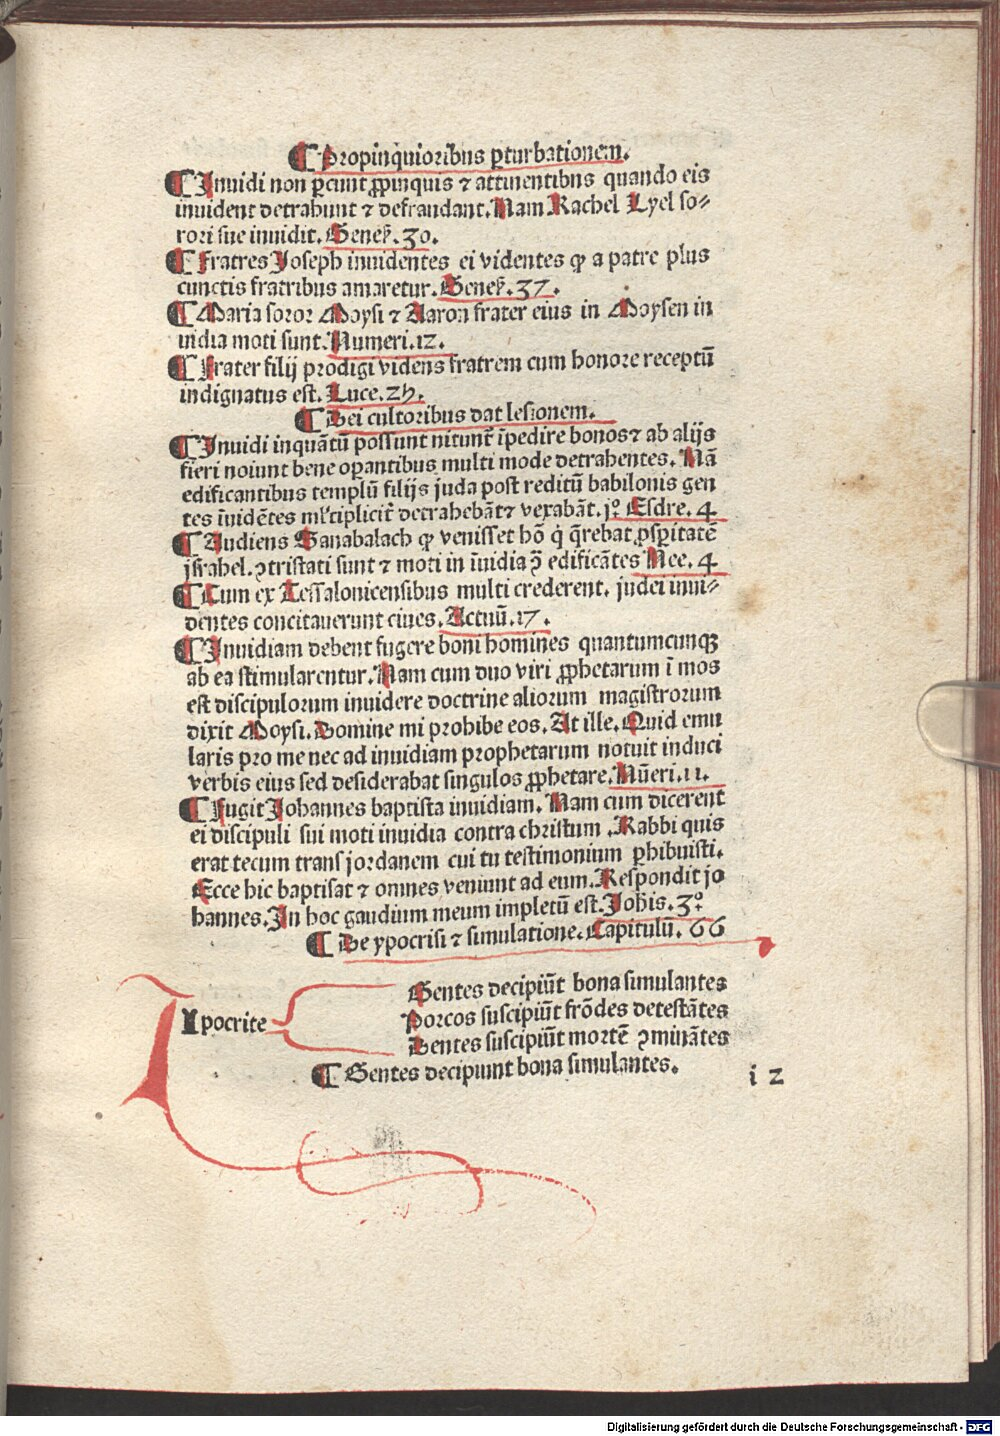 ¶ Propinquioribus ꝑturbationem.
¶ Inuidi non ꝑcunt ꝓpinquis ⁊ attinentibus quando eis
inuident detrahunt ⁊ defraudant. Nam Rachel Lyel so⸗
rori sue inuidit. Genes̄. 30.
¶ Fratres Joseph inuidentes ei videntes ꝙ a patre plus
cunctis fratribus amaretur. Genes̄. 37.
¶ Maria soror Moysi ⁊ Aaron frater eius in Moysen in
uidia moti sunt. Numeri. 12.
¶ Frater filij prodigi videns fratrem cum honore receptū
indignatus est. Luce. 25.
¶ Dei cultoribus dat lesionem.
¶ Inuidi inquātū possunt nitunt᷑ īpedire bonos ⁊ ab alijs
fieri nolunt bene oꝑantibus multi mode detrahentes. Nā
edificantibus templū filijs juda post reditū babilonis gen
tes īuidētes ml'tiplicit᷑ detrahebāt ⁊ vexabāt. jº Esdre. 4
¶ Audiens Sanabalach ꝙ venisset hō q̇ q̄rebat ꝓsꝑitatē
jsrahel. ꝯtristati sunt ⁊ moti in īuidia ꝯ̄ edificātes Nee. 4
¶ Cum ex Tessalonicensibus multi crederent. judei inui⸗
dentes concitauerunt ciues. Actuū. 17.
¶ Inuidiam debent fugere boni homines quantumcunqꝫ
ab ea stimularentur. Nam cum duo viri ꝓphetarum ī mos
est discipulorum inuidere doctrine aliorum magistrorum
dixit Moysi. Domine mi prohibe eos. At ille. Quid emu
laris pro me nec ad inuidiam prophetarum uotuit induci
verbis eius sed desiderabat singulos ꝓphetare. Nūeri. 11.
¶ Fugit Johannes baptista inuidiam. Nam cum dicerent
ei discipuli sui moti inuidia contra christum. Rabbi quis
erat tecum trans jordanem cui tu testimonium ꝑhibuisti.
Ecce hic baptisat ⁊ omnes veniunt ad eum. Respondit jo
hannes. In hoc gaudium meum impletū est. Joh̄is. 3º
¶ De ypocrisi ⁊ simulatione. Capitulū. 66
Ypocrite
Gentes decipiūt bona simulantes
Porcos suscipiūt frōdes detestātes
Dentes suscipiūt mortē ꝯminātes
¶ Gentes decipiunt bona simulantes.
i 2
Digitalisierung gefördert durch die Deutsche Forschungsgemeinschaft - DFG